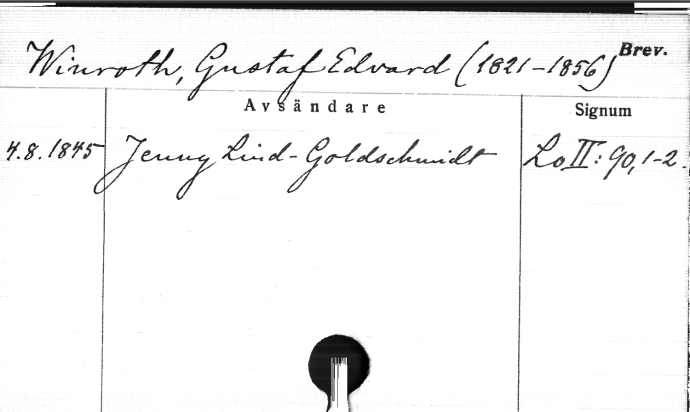 Winroth, Gustaf Edvard (1821-1856) Brev.
Avsändare Signum
4.8.1845 Jenny Lind-Goldschmidt Lo II: 90, 1-2.